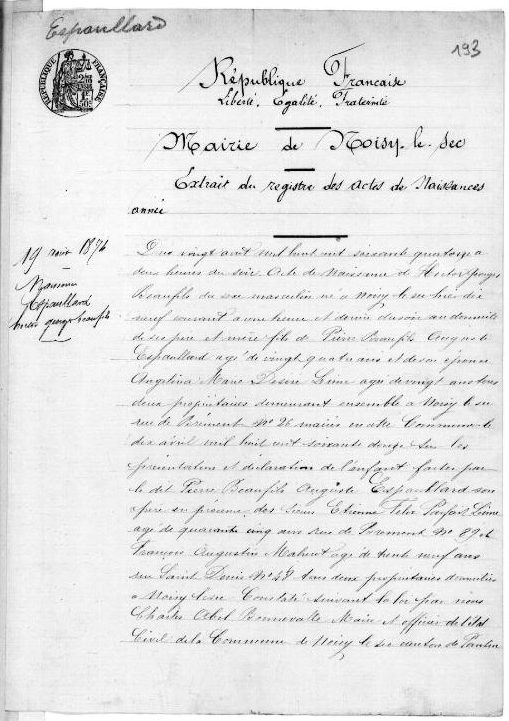 Espaullard
193
RÉPUBLIQUE FRANÇAISE
République Francaise
Liberté, Egalité, Fraternité
Mairie de Noisy-le-sec
Extrait du registre des actes de Naissances
année
19 avril 1874
Naissance
Espaullard
hector georges beaufils
Du vingt avril mil huit cent soixante quatorze a
deux heures du soir Acte de Naissance de Hector georges
beaufils du sexe masculin né a Noisy le sec hier dix
neuf courant a une heure et demie du soir au domicile
de ses père et mère fils de Pierre Beaufils Auguste
Espaullard agé de vingt quatre ans et de son épouse
Angelina Marie Desire agé de vingt ans tous
deux propriétaires demeurant ensemble a Noisy le sec
rue de No 26 mariés en cette Commune le
dix avril mil huit cent soixante douze Sur les
présentation et déclaration de l'enfant faites par
le dit Pierre Beaufils Auguste Espaullard son
père en presence des Sieurs Etienne Felix Parfait
age de quarante cinq ans Rue de No 89 et
François Augustin Mahent âgé de trente neuf ans
rue Saint Denis No 48 tous deux proprietaires domiciliés
a Noisy le sec Constaté suivant la loi par nous
Charles Abel Bonnevalle Maire et officier de l'état
Civil de la Commune de Noisy le sec canton de Pantin